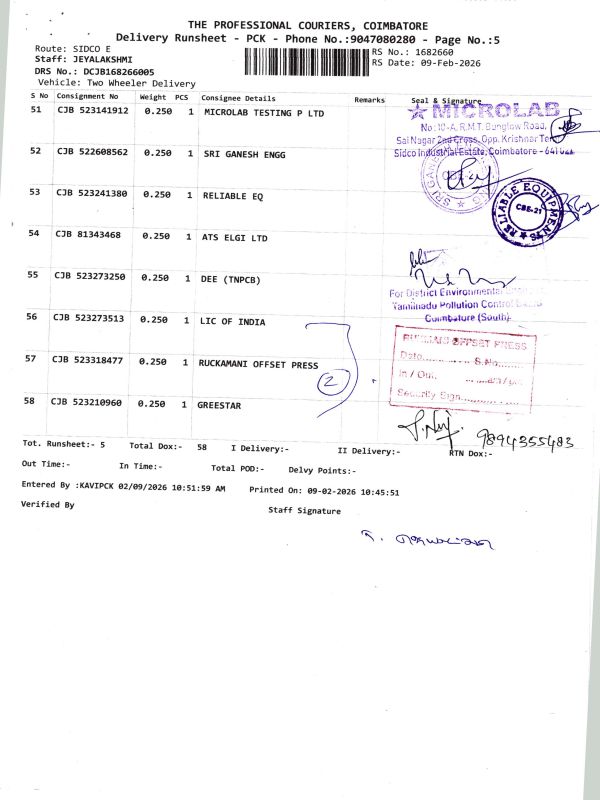 THE PROFESSIONAL COURIERS, COIMBATORE
Delivery Runsheet - PCK - Phone No.:9047080280 - Page No.:5
Route: SIDCO E
Staff: JEYALAKSHMI
DRS No.: DCJB168266005
Vehicle: Two Wheeler Delivery
RS No.: 1682660
RS Date: 09-Feb-2026
S No Consignment No Weight PCS Consignee Details Remarks Seal & Signature
51 CJB 523141912 0.250 1 MICROLAB TESTING P LTD
MICROLAB
No: 10-A, R.M.T. Bunglow Road,
Sai Nagar 2nd Cross, Opp. Krishnar
Sidco Industrial Estate, Coimbatore - 641
52 CJB 522608562 0.250 1 SRI GANESH ENGG
SRI GAN
CBE-21
53 CJB 523241380 0.250 1 RELIABLE EQ
RELIABLE EQUIPMENTS
CBE-21
54 CJB 81343468 0.250 1 ATS ELGI LTD
55 CJB 523273250 0.250 1 DEE (TNPCB)
For District Environmental
Tamilnadu Pollution Control
Coimbatore (South)
56 CJB 523273513 0.250 1 LIC OF INDIA
57 CJB 523318477 0.250 1 RUCKAMANI OFFSET PRESS
2
OFFSET PRESS
Date.............. S.No.........
In / Out. .......am/p.m.
Security Sign...............
58 CJB 523210960 0.250 1 GREESTAR
9894355483
Tot. Runsheet:- 5 Total Dox:- 58 I Delivery:- II Delivery:- RTN Dox:-
Out Time:- In Time:- Total POD:- Delvy Points:-
Entered By :KAVIPCK 02/09/2026 10:51:59 AM Printed On: 09-02-2026 10:45:51
Verified By Staff Signature